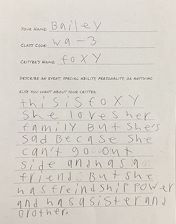 YOUR NAME: Bailey
CLASS CODE: wa-3
CRITTER'S NAME: foxy
DESCRIBE AN EVENT, SPECIAL ABILITY, PERSONALITY OR ANYTHING
ELSE YOU WANT ABOUT YOUR CRITTER:
this is foxy
She loves her
family But she's
sad Becase she
can't go out
side and has no
friend. But she
has freindship power
and has a sister and
brother.